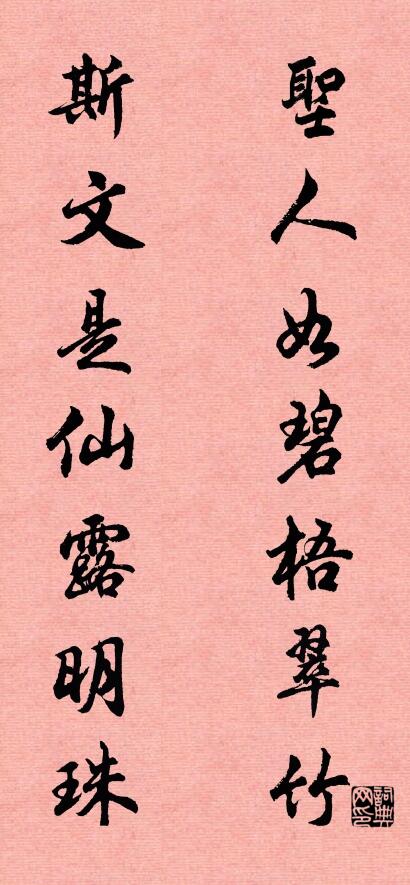 聖人如碧梧翠竹
斯文是仙露明珠
詞典网印